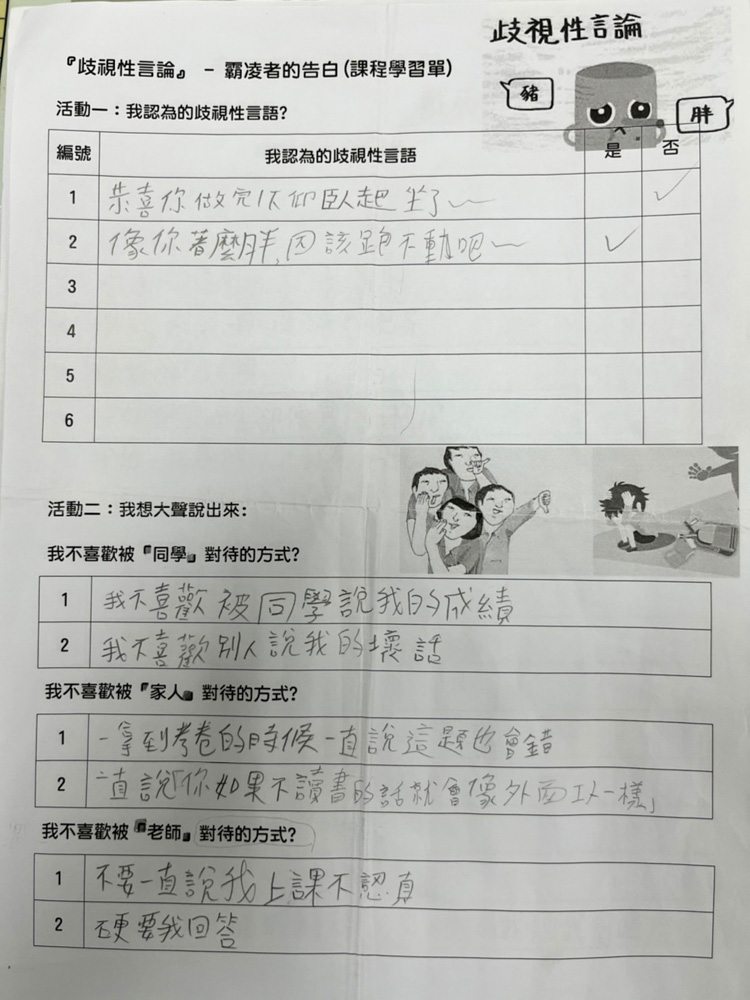 歧視性言論
『歧視性言論』 - 霸凌者的告白(課程學習單)
豬
胖
活動一：我認為的歧視性言語?
編號 我認為的歧視性言語 是 否
1 恭喜你做完 仰臥起坐了~ ✓
2 像你著麼胖,因該跑不動吧~ ✓
3
4
5
6
活動二：我想大聲說出來:
我不喜歡被『同學』對待的方式?
1 我不喜歡被同學說我的成績
2 我不喜歡別人說我的壞話
我不喜歡被『家人』對待的方式?
1 一拿到考卷的時候一直說這題也會錯
2 一直說「你如果不讀書的話就會像外面 一樣」
我不喜歡被『老師』對待的方式?
1 不要一直說我上課不認真
2 硬要我回答